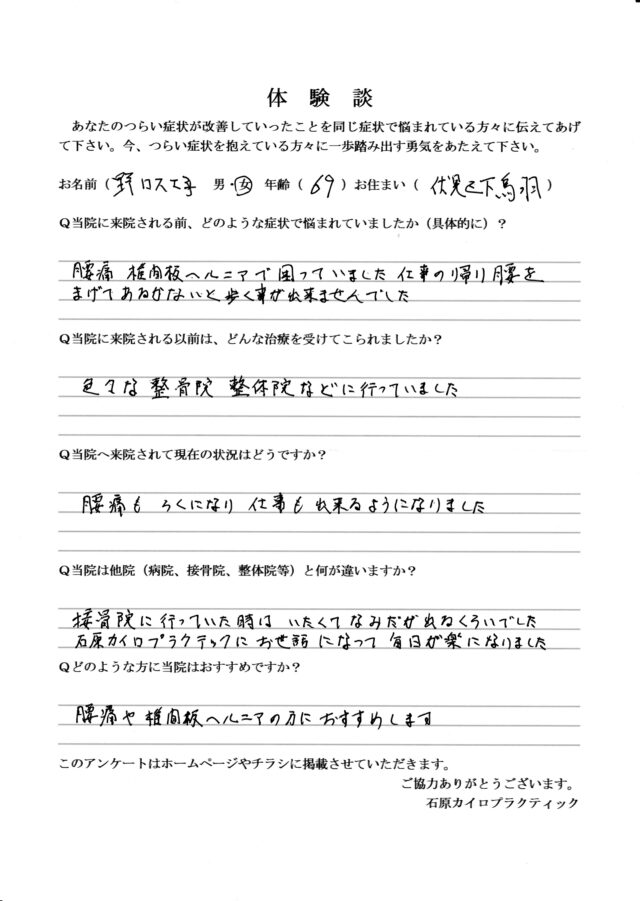 体験談
あなたのつらい症状が改善していったことを同じ症状で悩まれている方々に伝えてあげ
て下さい。今、つらい症状を抱えている方々に一歩踏み出す勇気をあたえて下さい。
お名前（野口 子 男・女 年齢（69）お住まい（伏見区下鳥羽）
Q当院に来院される前、どのような症状で悩まれていましたか（具体的に）？
腰痛 椎間板ヘルニアで困っていました 仕事の帰り腰を
まげてあるかないと歩く事が出来ませんでした
Q当院に来院される以前は、どんな治療を受けてこられましたか？
色々な整骨院 整体院などに行っていました
Q当院へ来院されて現在の状況はどうですか？
腰痛も らくになり 仕事も 出来るようになりました
Q当院は他院（病院、接骨院、整体院等）と何が違いますか？
接骨院に行っていた時は いたくてなみだが出るくらいでした
石原カイロプラクテックに お世話になって 毎日が楽になりました
Qどのような方に当院はおすすめですか？
腰痛や椎間板ヘルニアの方に おすすめします
このアンケートはホームページやチラシに掲載させていただきます。
ご協力ありがとうございます。
石原カイロプラクティック